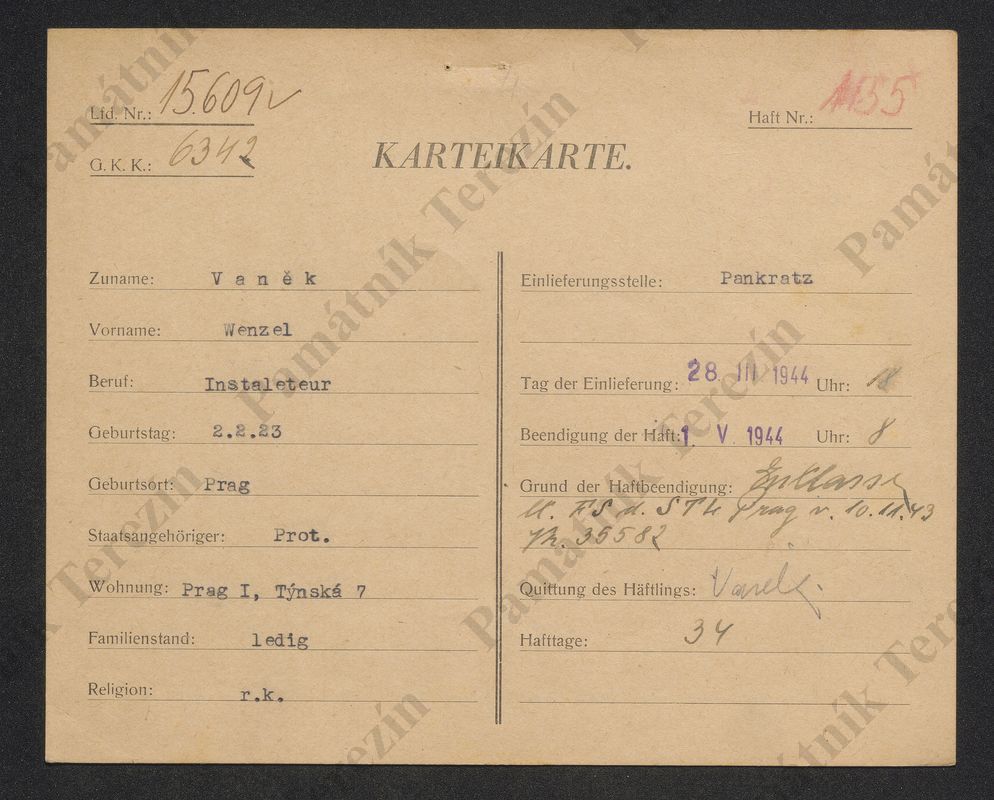 Lfd. Nr.: 15.609
G. K. K.: 6342
Haft Nr.: 1155
KARTEIKARTE.
Zuname: Vaněk
Vorname: Wenzel
Beruf: Instaleteur
Geburtstag: 2.2.23
Geburtsort: Prag
Staatsangehöriger: Prot.
Wohnung: Prag I, Týnská 7
Familienstand: ledig
Religion: r.k.
Einlieferungsstelle: Pankratz
Tag der Einlieferung: 28. III 1944 Uhr: 18
Beendigung der Haft: 1. V. 1944 Uhr: 8
Grund der Haftbeendigung: Entlassen
lt. FS d. STL Prag v. 10.11.43
Nr. 35582
Quittung des Häftlings: Vaněk
Hafttage: 34
Památník Terezín
Památník Terezín
Památník Terezín